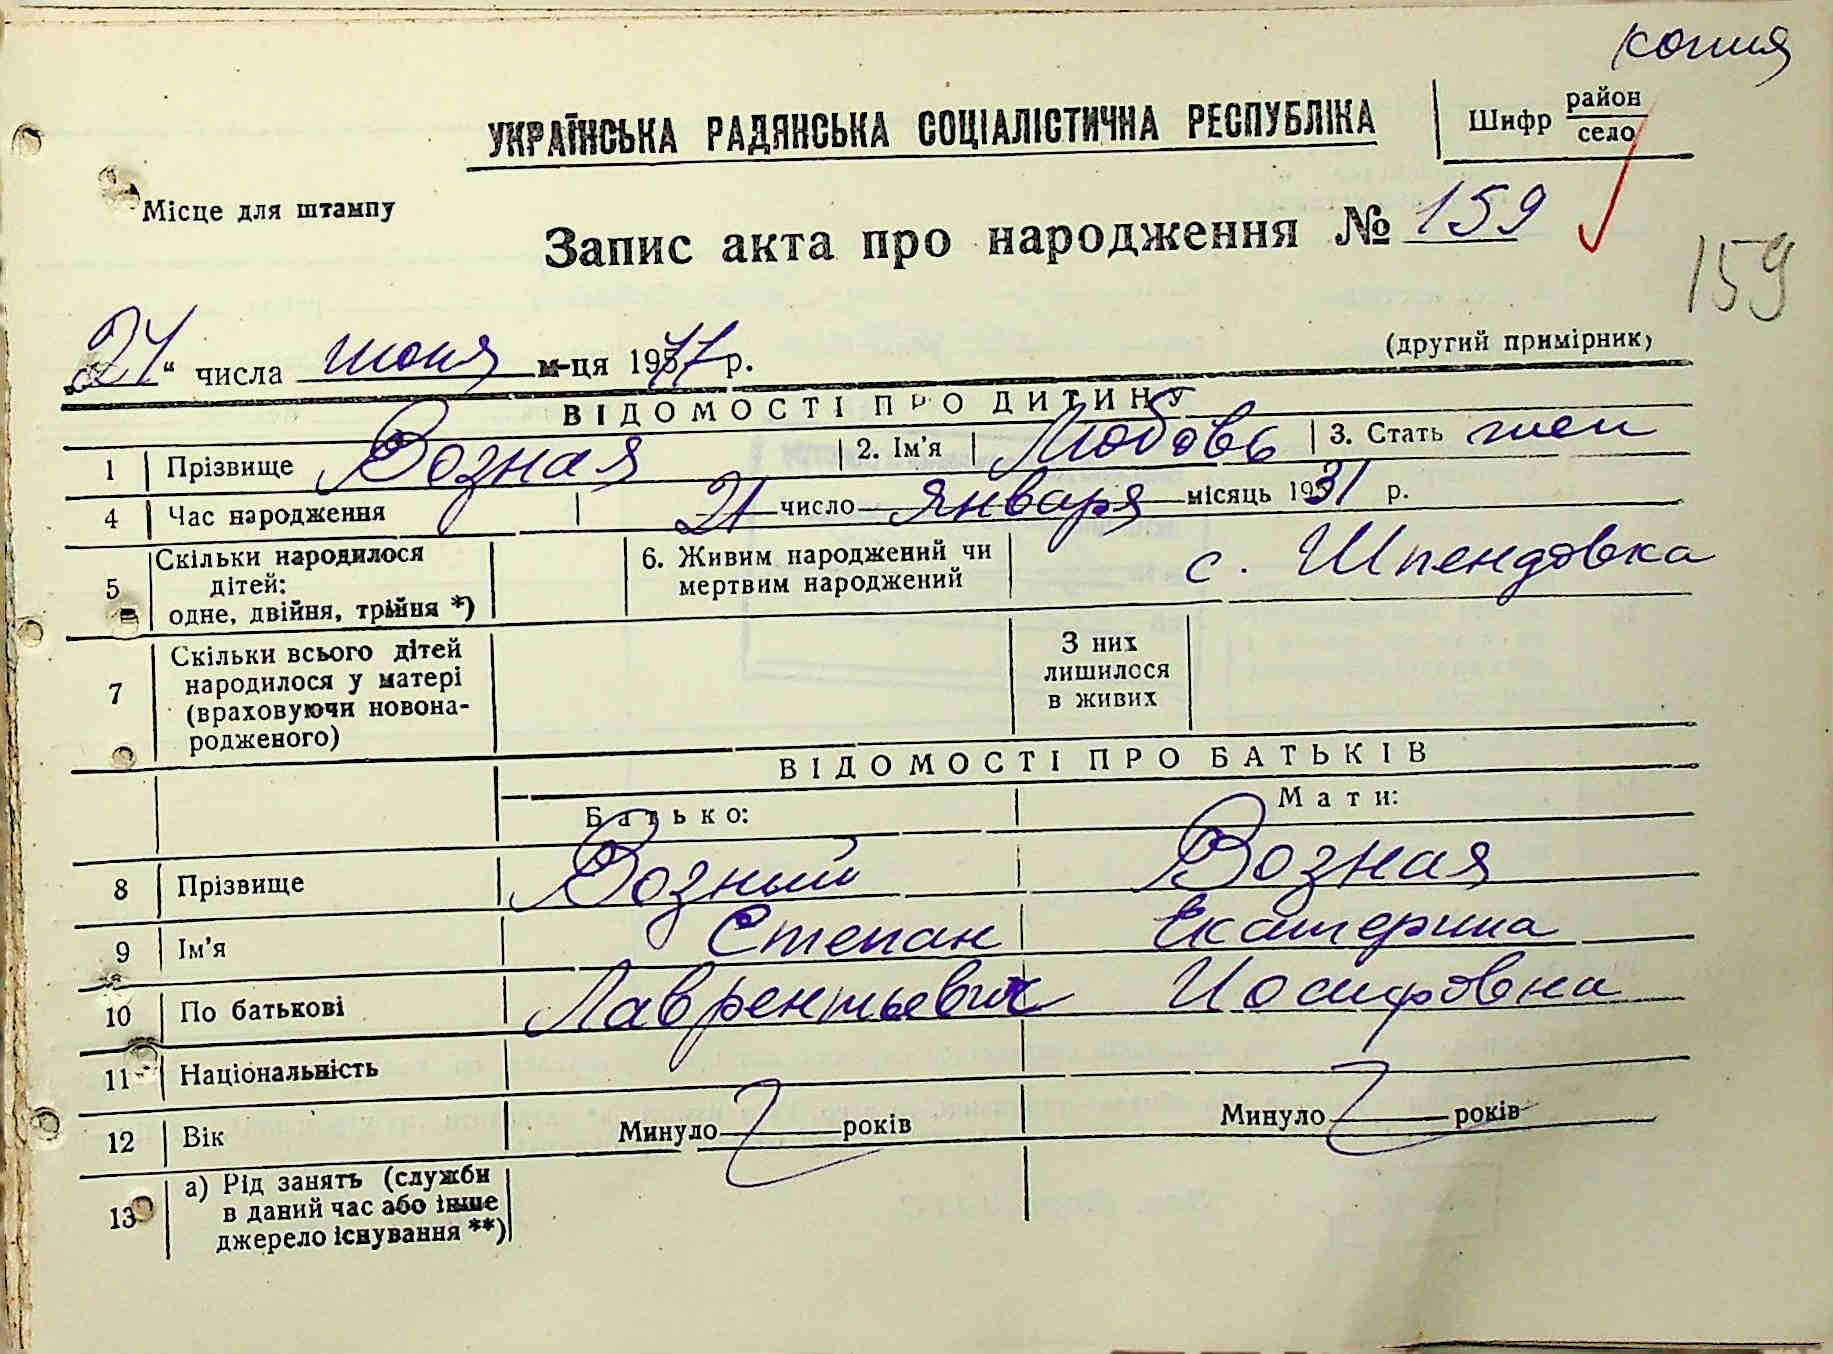 копия
УКРАЇНСЬКА РАДЯНСЬКА СОЦІАЛІСТИЧНА РЕСПУБЛІКА
Шифр район село
Місце для штампу
Запис акта про народження № 159
159
(другий примірник)
числа июня м-ця 1977 р.
ВІДОМОСТІ ПРО ДИТИНУ
1 Прізвище Возная 2. Ім'я Любовь 3. Стать жен
4 Час народження 21 число января місяць 1931 р.
5 Скільки народилося дітей: одне, двійня, трійня *) 6. Живим народжений чи мертвим народжений с. Шпендовка
7 Скільки всього дітей народилося у матері (враховуючи новонародженого) З них лишилося в живих
ВІДОМОСТІ ПРО БАТЬКІВ
Батько: Мати:
8 Прізвище Возный Возная
9 Ім'я Степан Екатерина
10 По батькові Лаврентьевич Иосифовна
11 Національність
12 Вік Минуло років Минуло років
13 а) Рід занять (служби в даний час або інше джерело існування **)